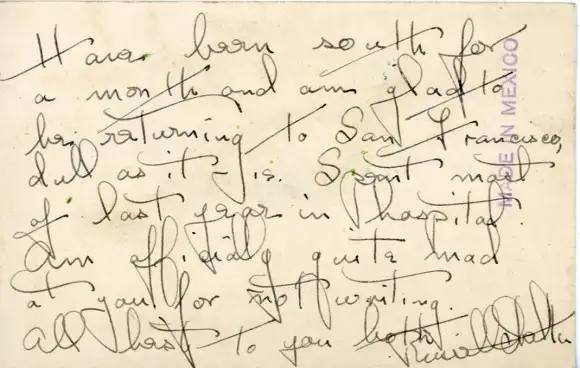 Have been south for
a month and am glad to
be returning to San Francisco,
dull as it is. Spent most
of last year in hospital.
Am officially quite mad
at you for not writing.
All best to you both
MADE IN MEXICO